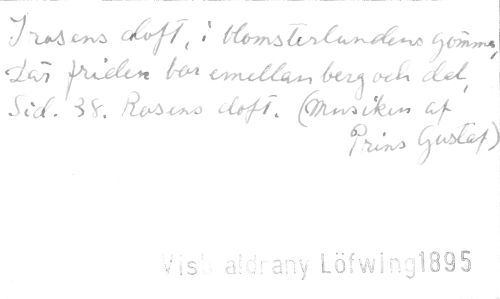 I rosens doft, i blomsterlundens gömma,
Där friden bor emellan berg och dal,
Sid. 38. Rosens doft. (Musiken af
Prins Gustaf)
Visb aldrany Löfwing1895